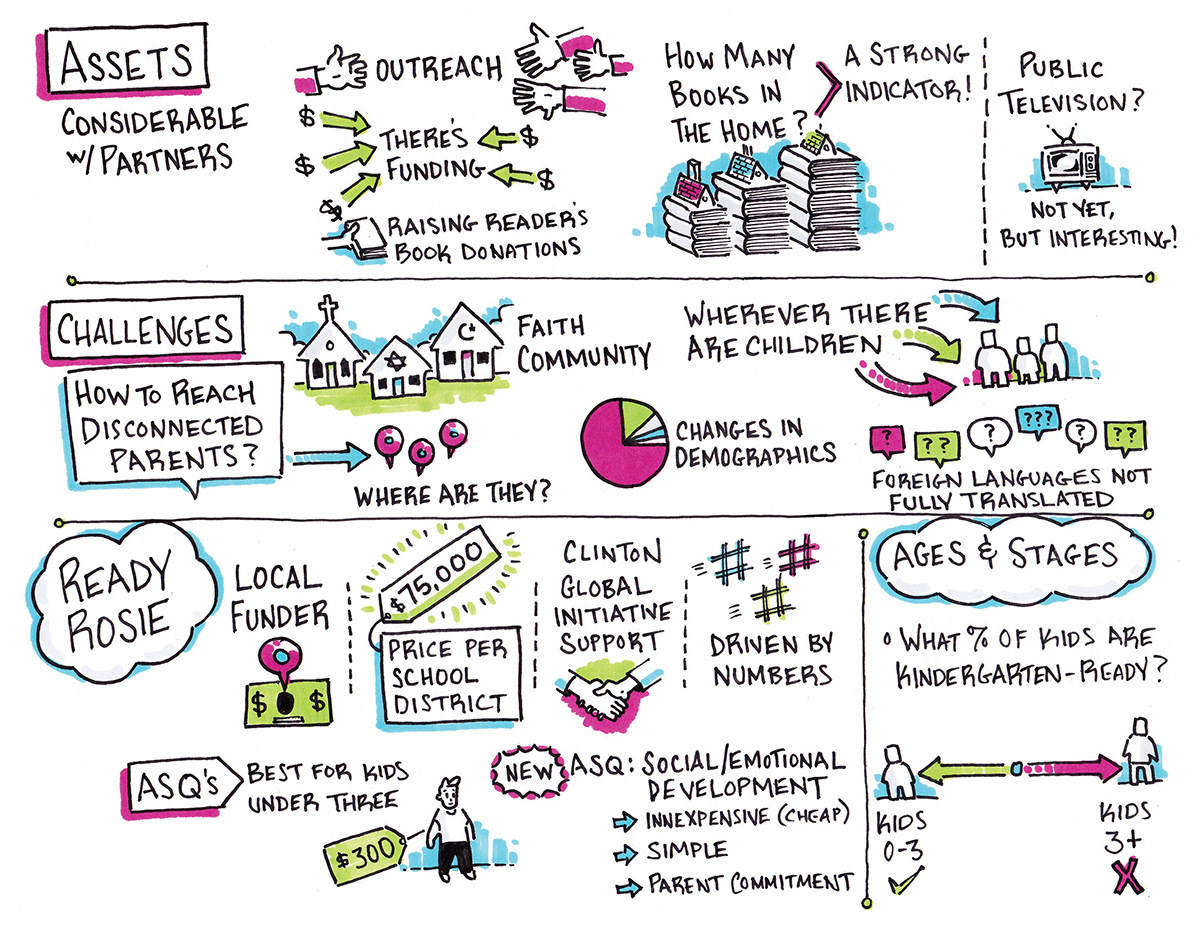 ASSETS
CONSIDERABLE
W/ PARTNERS
OUTREACH
$
$
$
THERE'S
FUNDING
$
$
RAISING READER'S
BOOK DONATIONS
HOW MANY
BOOKS IN
THE HOME?
A STRONG
INDICATOR!
PUBLIC
TELEVISION?
NOT YET,
BUT INTERESTING!
CHALLENGES
HOW TO REACH
DISCONNECTED
PARENTS?
FAITH
COMMUNITY
WHERE ARE THEY?
WHEREVER THERE
ARE CHILDREN
CHANGES IN
DEMOGRAPHICS
?
??
?
???
?
??
FOREIGN LANGUAGES NOT
FULLY TRANSLATED
READY
ROSIE
LOCAL
FUNDER
$ $
$75,000
PRICE PER
SCHOOL
DISTRICT
CLINTON
GLOBAL
INITIATIVE
SUPPORT
# # #
DRIVEN BY
NUMBERS
ASQ'S
BEST FOR KIDS
UNDER THREE
$300
NEW
ASQ: SOCIAL/EMOTIONAL
DEVELOPMENT
INNEXPENSIVE (CHEAP)
SIMPLE
PARENT COMMITMENT
AGES & STAGES
WHAT % OF KIDS ARE
KINDERGARTEN-READY?
KIDS
0-3
KIDS
3+
X